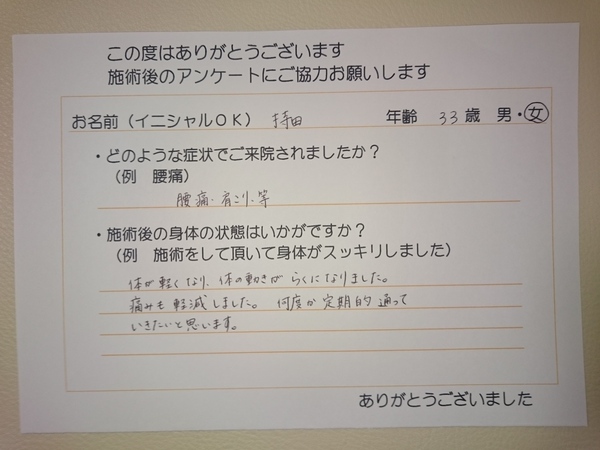 この度はありがとうございます
施術後のアンケートにご協力お願いします
お名前（イニシャルＯＫ） 持田 年齢 33歳 男・女
・どのような症状でご来院されましたか？
（例 腰痛）
腰痛、肩こり、等
・施術後の身体の状態はいかがですか？
（例 施術をして頂いて身体がスッキリしました）
体が軽くなり、体の動きがらくになりました。
痛みも軽減しました。 何度か定期的通って
いきたいと思います。
ありがとうございました